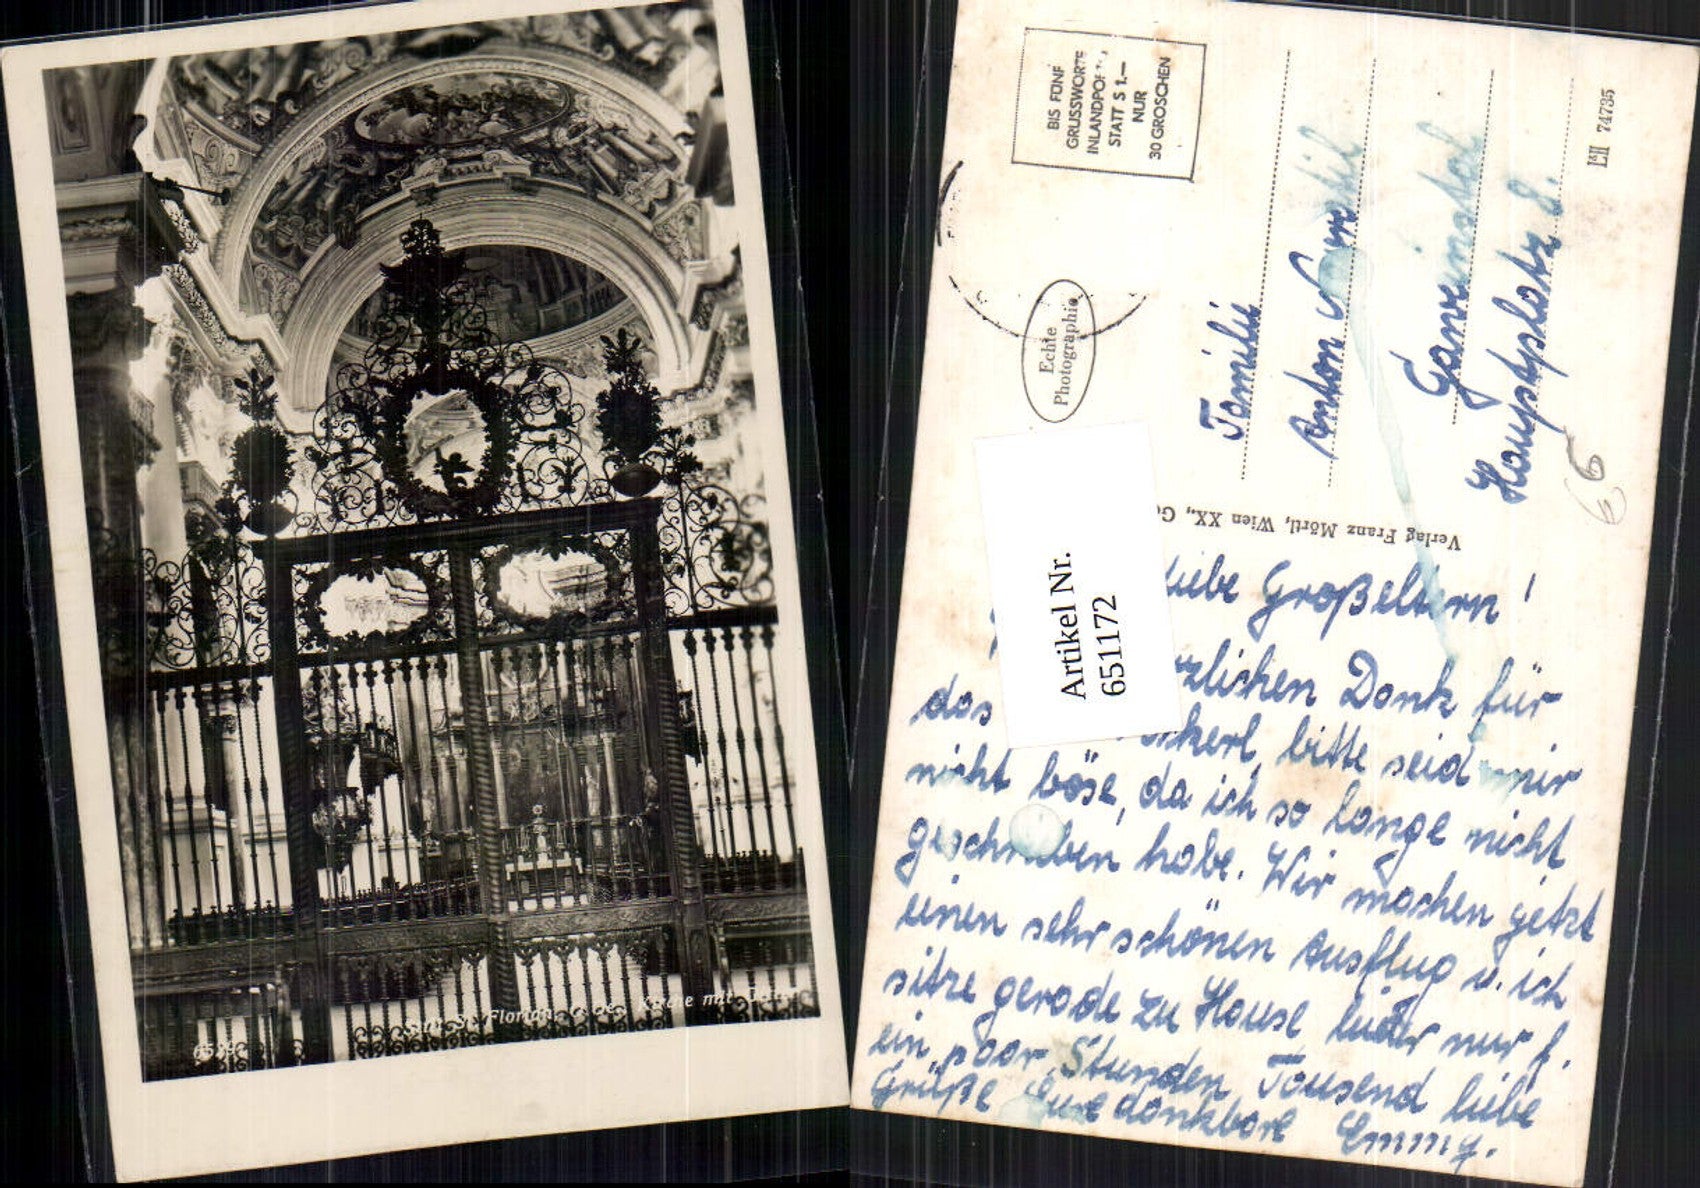 6589
Stift St. Florian, O. Oe. Kirche mit
BIS FÜNF
GRUSSWORTE
INLANDPORTO
STATT S 1.—
NUR
30 GROSCHEN
Echte
Photographie
Familie
Anton
Hauptplatz 8.
LII 74735
66
Verlag Franz Mörtl, Wien XX., G
Artikel Nr.
651172
Liebe Großeltern!
zlichen Dank für
das kerl, bitte seid mir
nicht böse, da ich so lange nicht
geschrieben habe. Wir machen jetzt
einen sehr schönen Ausflug u. ich
sitze gerade zu Hause leider nur f.
ein paar Stunden Tausend liebe
Grüße Eure dankbare Emmy.